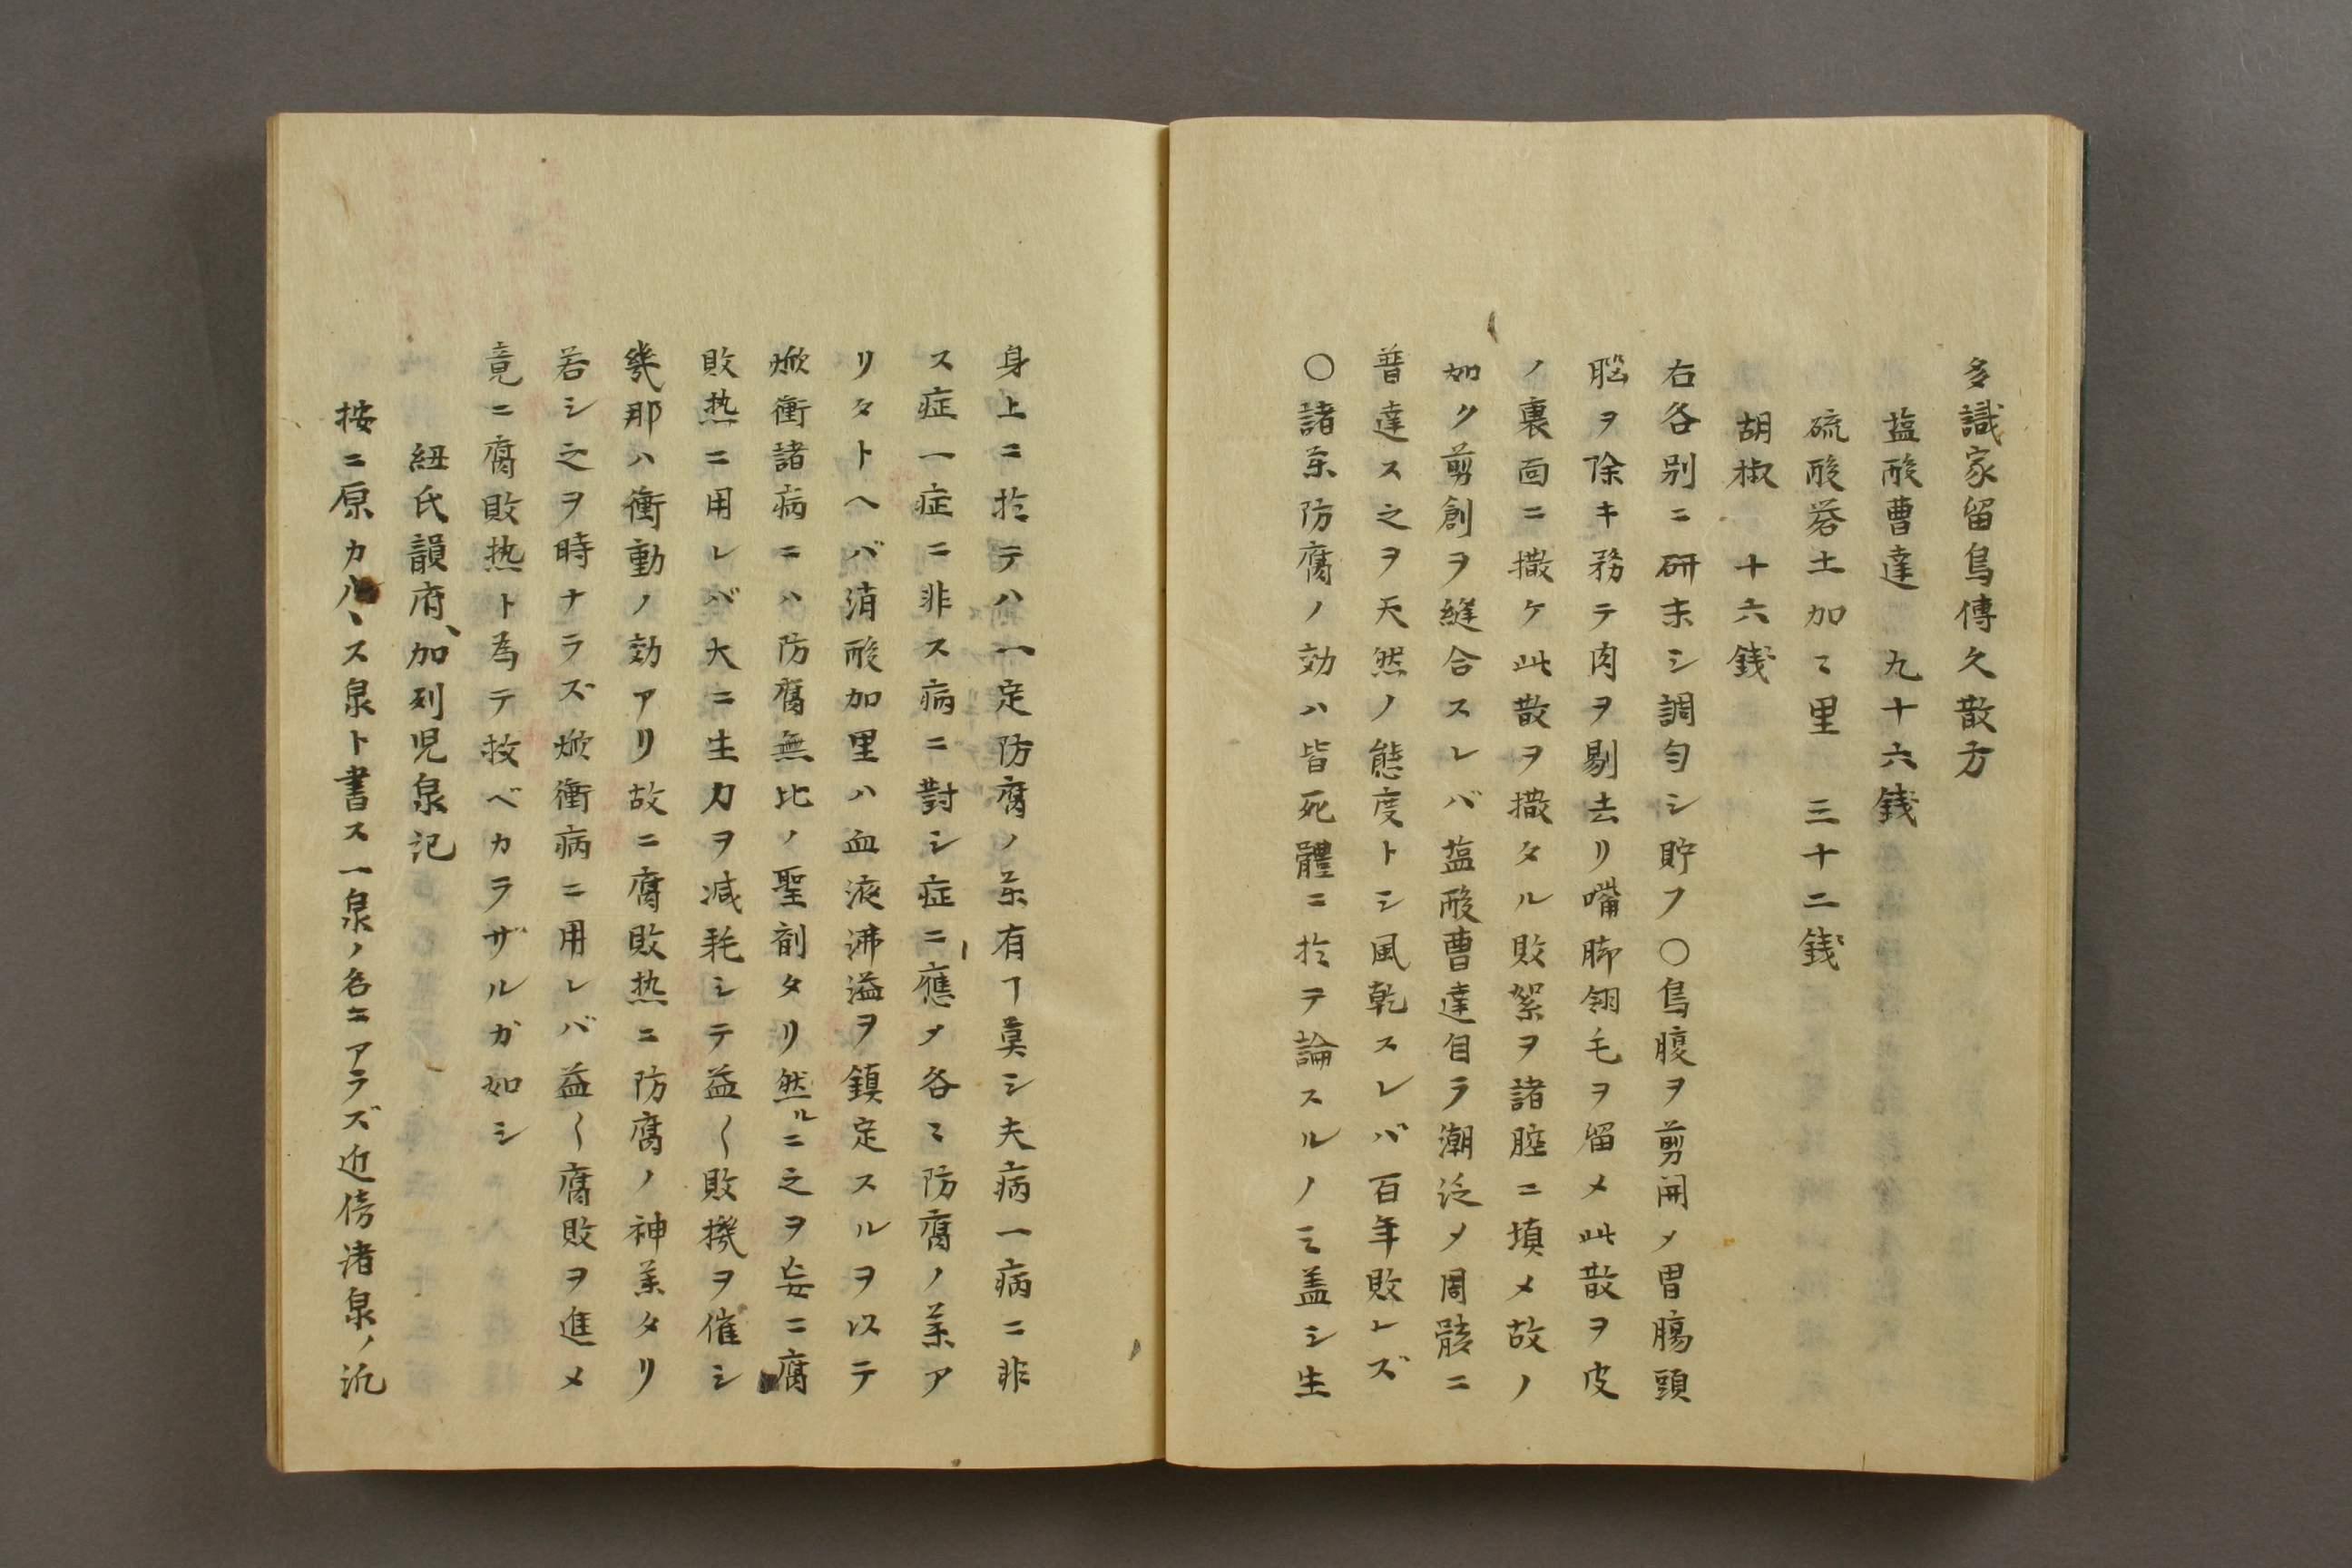 多識家留鳥傳久散方
塩酸曹達　九十六銭
硫酸礬土加〻里　三十二銭
胡椒　十六銭
右各別ニ研末シ調匀シ貯フ〇鳥腹ヲ剪開メ胃腸頭
脳ヲ除キ務テ肉ヲ剔去リ嘴脚翎毛ヲ留メ此散ヲ皮
ノ裏面ニ撒ケ此散ヲ撒タル敗絮ヲ諸腔ニ填メ故ノ
如ク剪創ヲ縫合スレバ塩酸曹達自ラ潮泛メ周骸ニ
普達ス之ヲ天然ノ態度トシ風乾スレバ百年敗レズ
〇諸薬防腐ノ効ハ皆死體ニ於ヲ論スルノミ蓋シ生
身上ニ於テハ一定防腐ノ薬有ヿ莫シ夫病一病ニ非
ス症一症ニ非ス病ニ對シ症ニ應メ各〻防腐ノ薬ア
リタトヘバ消酸加里ハ血液沸溢ヲ鎮定スルヲ以テ
焮衝諸病ニハ防腐無比ノ聖剤タリ然ルニ之ヲ妄ニ腐
敗热ニ用レバ大ニ生力ヲ減耗シテ益〱敗機ヲ催シ
幾那ハ衝動ノ効アリ故ニ腐敗热ニ防腐ノ神薬タリ
若シ之ヲ時ナラズ焮衝病ニ用レバ益〱腐敗ヲ進メ
竟ニ腐敗热ト為テ救ベカラザルガ如シ
紐氏韻府、加列児泉記
按ニ原カルヽス泉ト書ス一泉ノ名ニアラズ近傍渚泉ノ沉